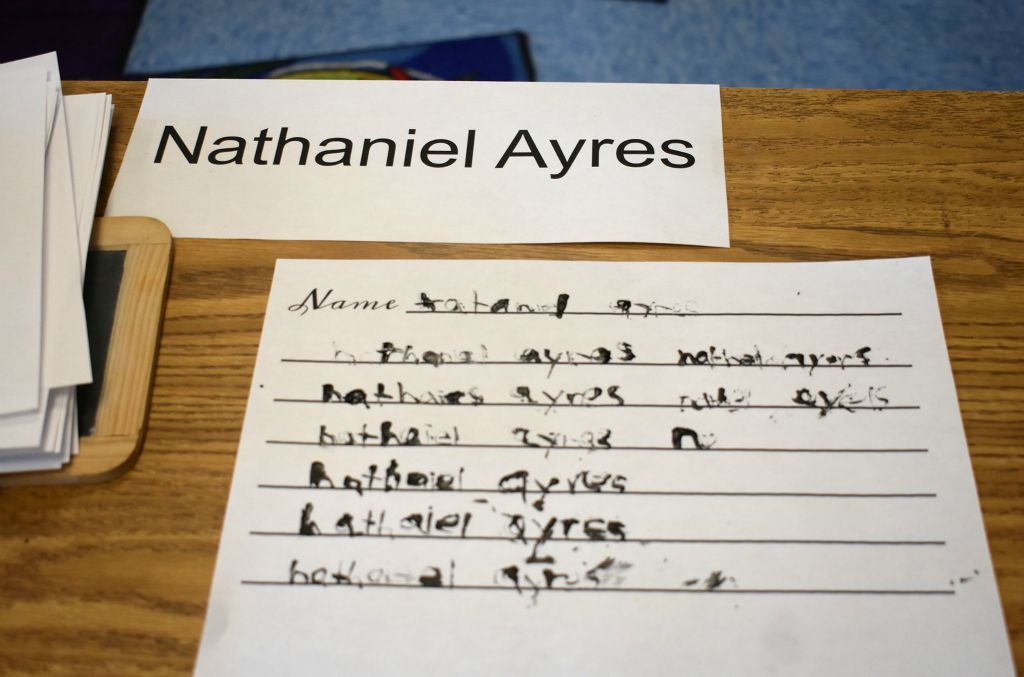 Nathaniel Ayres
Name natanil ayres
nthaniel ayres nathal ayers
nathaies ayres ayers
hathaiel ayres n
hathaiel ayres
hathaiel ayres
hathaiel ayres